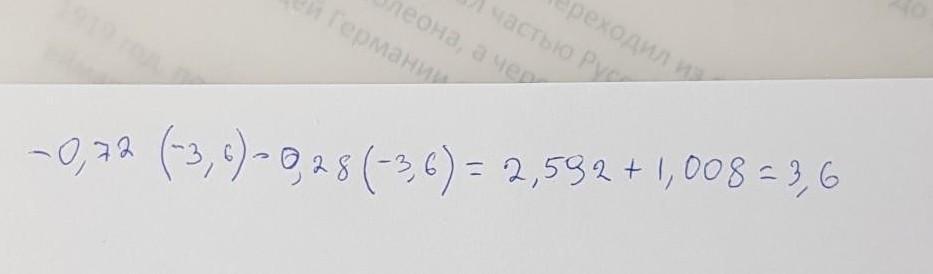 1919 год, по
леона, а чере
ей Германии
л частью Русс
ереходил из
до
-0,72 (-3,6)-0,28(-3,6)= 2,592+1,008=3,6